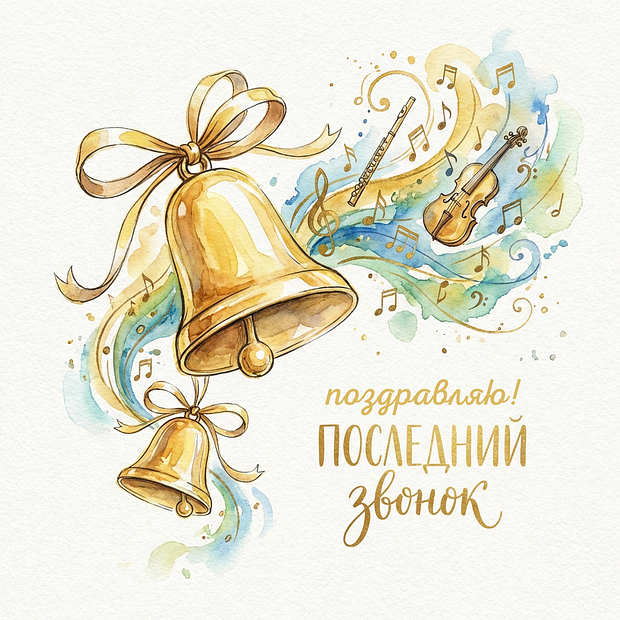 поздравляю!
ПОСЛЕДНИЙ
звонок